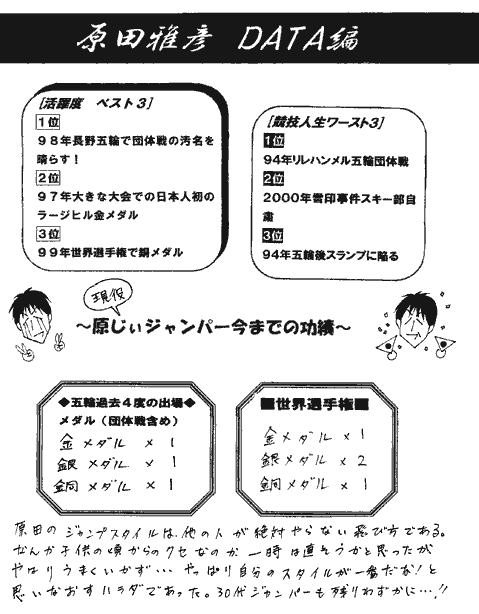 原田雅彦 DATA編
[活躍度 ベスト3]
1位
98年長野五輪で団体戦の汚名を
晴らす!
2位
97年大きな大会での日本人初の
ラージヒル金メダル
3位
99年世界選手権で銅メダル
[競技人生ワースト3]
1位
94年リレハンメル五輪団体戦
2位
2000年雪印事件スキー部自
粛
3位
94年五輪後スランプに陥る
現役
～原じぃジャンパー今までの功績～
◆五輪過去4度の出場◆
メダル(団体戦含め)
金メダル × 1
銀メダル × 1
銅メダル × 1
■世界選手権■
金メダル × 1
銀メダル × 2
銅メダル × 1
原田のジャンプスタイルは、他の人が絶対やらない飛び方である。
なんか子供の頃からのクセなのか一時は直そうかと思ったが
やはりうまくいかず… やっぱり自分のスタイルが一番だな!と
思いなおすハラダであった。30代ジャンパーも残りわずかに…!!